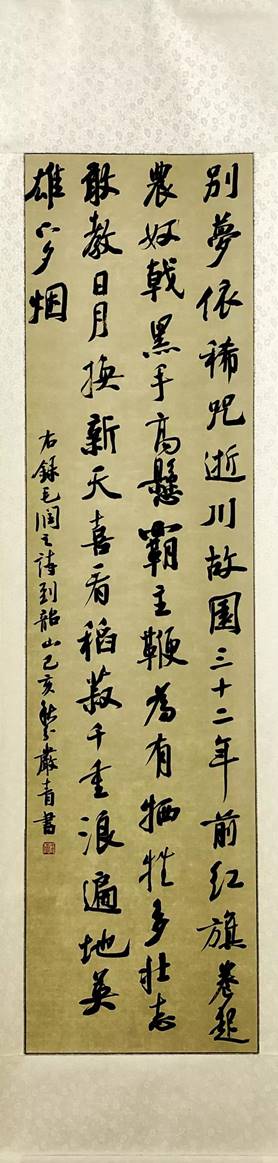 别夢依稀咒逝川故園三十二年前红旗卷起
農奴戟黑手高懸霸主鞭為有牺牲多壮志
敢教日月换新天喜看稻菽千重浪遍地英
雄下夕烟
右録毛润之詩到韶山己亥秋嚴青書